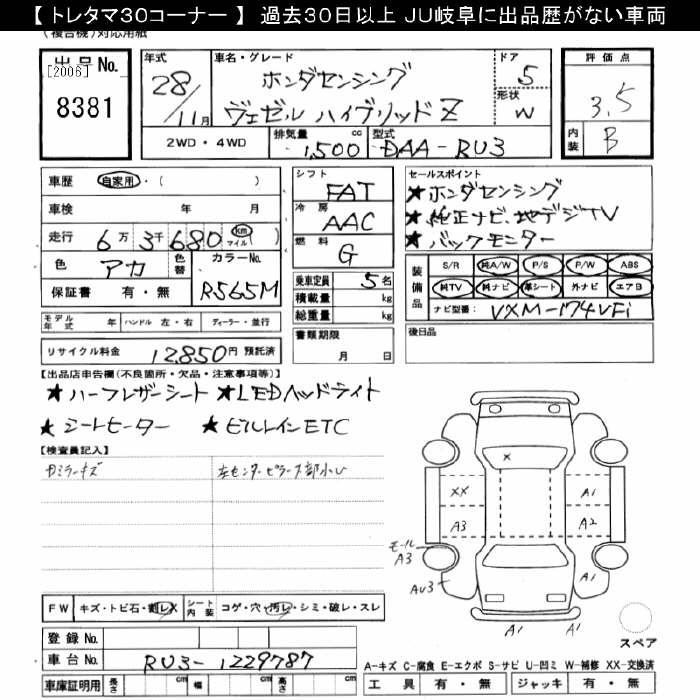 【 トレタマ30コーナー 】 過去30日以上 JU岐阜に出品歴がない車両
(複合機)対応用紙
出品No.
[2006]
8381
年式
28/11月
車名・グレード
ホンダセンシング
ヴェゼル ハイブリッドZ
ドア
5
形状
W
評価点
3.5
内装
B
2WD・4WD
排気量
1,500 cc
型式
DAA-RU3
車歴 自家用・( )
車検 年 月
走行 6万3千680 km マイル ( )
色 アカ
色替
カラーNo. R565M
保証書 有・無
モデル年式 年 ハンドル 左・右 ディーラー・並行
リサイクル料金 12,850円 預託済
シフト
FAT
冷房
AAC
燃料
G
乗車定員 5名
積載量 kg
総重量 kg
書類期限
月 日
セールスポイント
★ホンダセンシング
★純正ナビ、地デジTV
★バックモニター
装備品
S/R 純A/W P/S P/W ABS
純TV 純ナビ 革シート 外ナビ エアB
ナビ型番: VXM-174VFi
後日品
【出品店申告欄(不良箇所・欠品・注意事項等)】
★ハーフレザーシート ★LEDヘッドライト
★シートヒーター ★ビルトインETC
【検査員記入】
左センターピラー下部小U
FW キズ・トビ石・割レX
シート内装 コゲ・穴・汚レ・シミ・破レ・スレ
登録No.
車台No. RU3-1229787
車庫証明用 長さ cm 幅 cm 高さ cm
X
XX
A1
A3
A2
モールA3
AU3
A1
A1
A1
スペア
A-キズ C-腐食 E-エクボ S-サビ U-凹ミ W-補修 XX-交換済
工具 有・無 ジャッキ 有・無